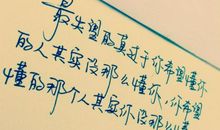 最失望的莫过于你希望懂你
的人其实没那么懂你,你希望
懂的那个人其实你没那么